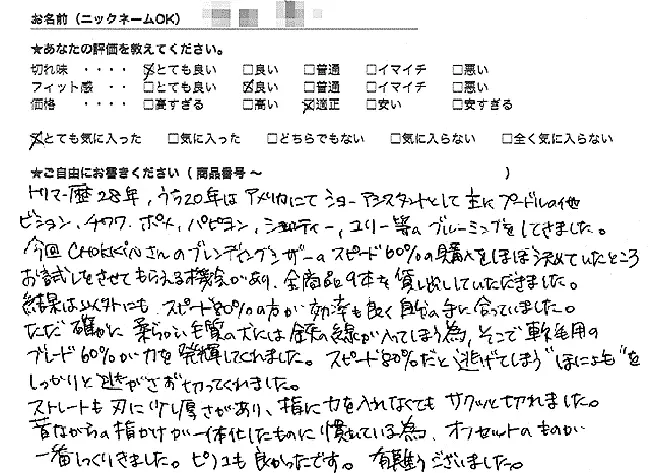 お名前（ニックネームOK）
★あなたの評価を教えてください。
切れ味 ・・・・ ☒とても良い □良い □普通 □イマイチ □悪い
フィット感 ・・ □とても良い ☒良い □普通 □イマイチ □悪い
価格 ・・・・ □高すぎる □高い ☒適正 □安い □安すぎる
☒とても気に入った □気に入った □どちらでもない □気に入らない □全く気に入らない
★ご自由にお書きください（ 商品番号 〜 ）
トリマー歴28年，うち20年はアメリカにてショーアシスタントとして主にプードルの他
ビション，チワワ，ポメ，パピヨン，シェルティー，ヨーキー等のグルーミングをしてきました。
今回CHOKKINさんのブレンディングシザーのスピード60%の購入をほぼ決めていたところ
お試しをさせてもらえる機会があり、全商品9本を貸し出していただきました。
結果は以外にも スピード80%の方が効率も良く自分の手に合っていました。
ただ確かに柔らかい毛質の犬には鋏の線が入ってしまう為、そこで軟毛用の
ブレード60%が力を発揮してくれました。スピード80%だと逃げてしまう"ほにょ毛"を
しっかりと逃がさず切ってくれました。
ストレートも刃に少し厚さがあり、指に力を入れなくてもサクッと切れました。
昔ながらの指かけが一体化したものに慣れている為、オフセットのものが
一番しっくりきました。ピノコも良かったです。有難うございました。